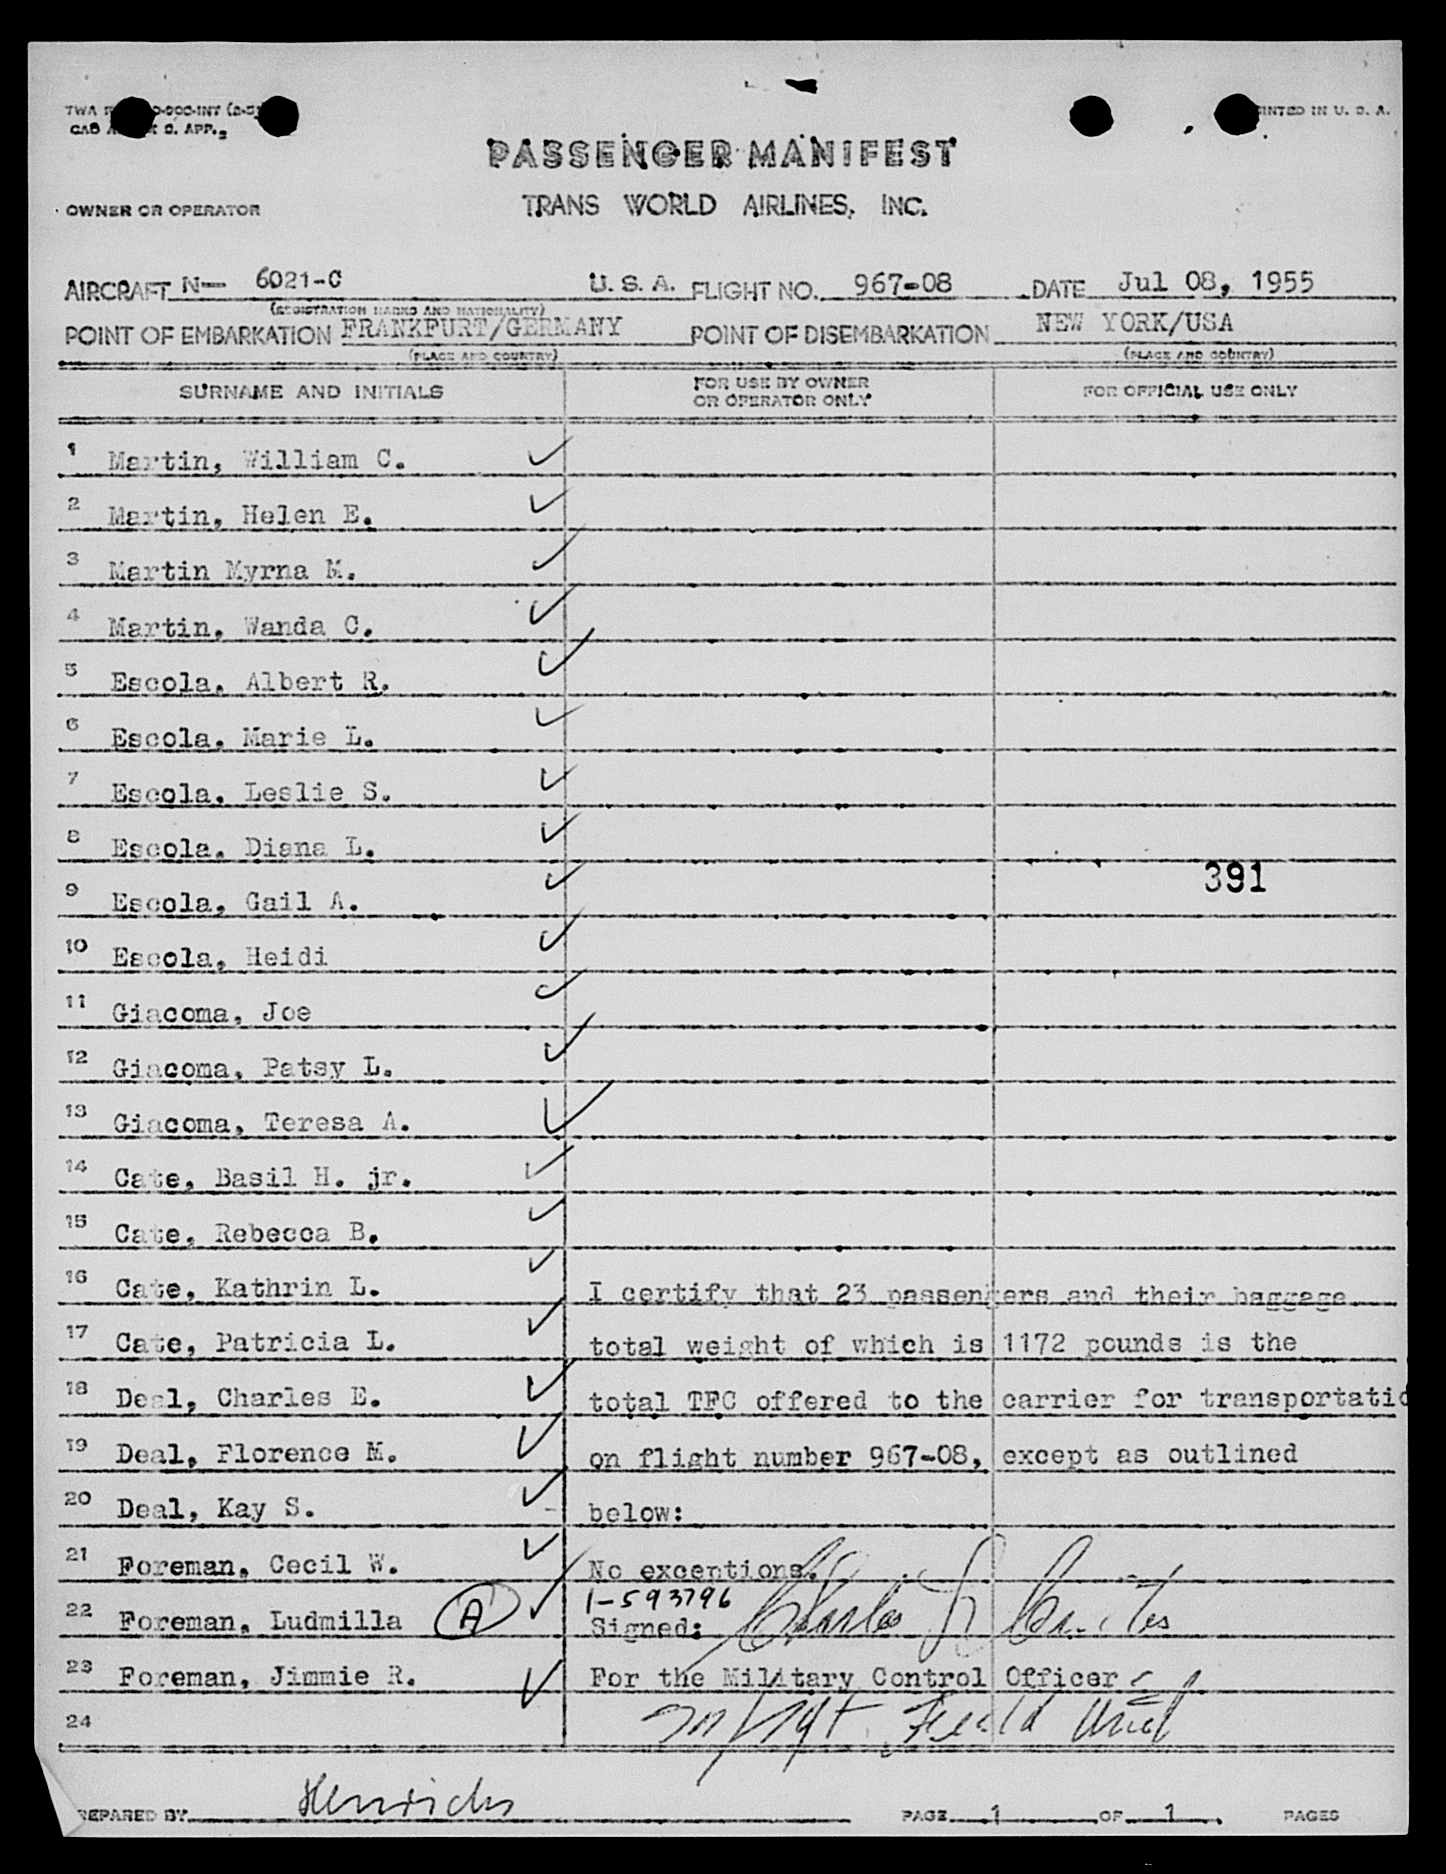 PRINTED IN U. S. A.
PASSENGER MANIFEST
OWNER OR OPERATOR TRANS WORLD AIRLINES, INC.
AIRCRAFT N— 6021-C U. S. A. FLIGHT NO. 967-08 DATE Jul 08, 1955
(REGISTRATION MARKS AND NATIONALITY)
POINT OF EMBARKATION FRANKFURT/GERMANY POINT OF DISEMBARKATION NEW YORK/USA
(PLACE AND COUNTRY) (PLACE AND COUNTRY)
SURNAME AND INITIALS FOR USE BY OWNER OR OPERATOR ONLY FOR OFFICIAL USE ONLY
1 Martin, William C.
2 Martin, Helen E.
3 Martin Myrna M.
4 Martin, Wanda C.
5 Escola, Albert R.
6 Escola, Marie L.
7 Escola, Leslie S.
8 Escola, Diana L.
391
9 Escola, Gail A.
10 Escola, Heidi
11 Giacoma, Joe
12 Giacoma, Patsy L.
13 Giacoma, Teresa A.
14 Cate, Basil H. jr.
15 Cate, Rebecca B.
16 Cate, Kathrin L. I certify that 23 passengers and their baggage
17 Cate, Patricia L. total weight of which is 1172 pounds is the
18 Deal, Charles E. total TFC offered to the carrier for transportatio
19 Deal, Florence M. on flight number 967-08, except as outlined
20 Deal, Kay S. below:
21 Foreman, Cecil W. No exceptions.
1-593796
22 Foreman, Ludmilla A Signed: Charles
23 Foreman, Jimmie R. For the Military Control Officer
24 M/Sgt. Field Unit
PREPARED BY Henrichs PAGE 1 OF 1 PAGES